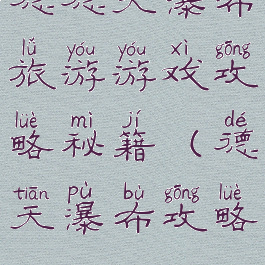 德天瀑布
lǚ yóu yóu xì gōng
旅游游戏攻
lüè mì jí dé
略秘籍(德
tiān pù bù gōng lüè
天瀑布攻略